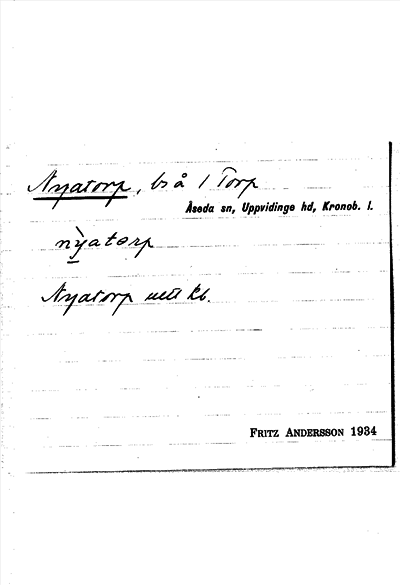 Nyatorp, bs å 1 Torp
Åseda sn, Uppvidinge hd, Kronob. l.
nỳatorp
Nyatorp utt kb.
Fritz Andersson 1934